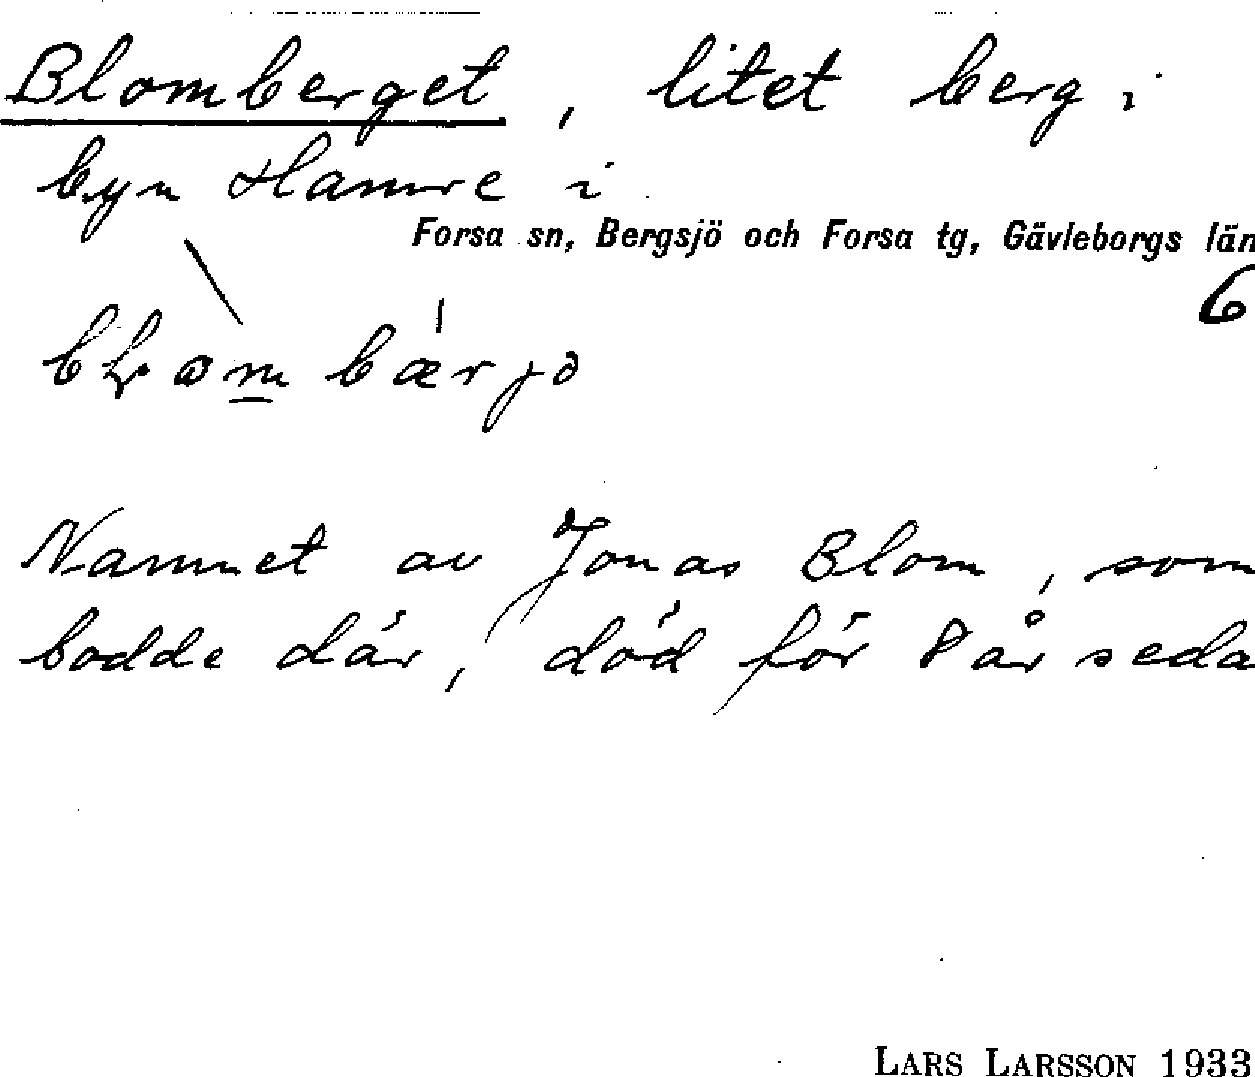 Blomberget, litet berg i
byn Hamre i
Forsa sn, Bergsjö och Forsa tg, Gävleborgs län
6
Namnet av Jonas Blom, som
bodde där, död för 8 år seda
LARS LARSSON 1933